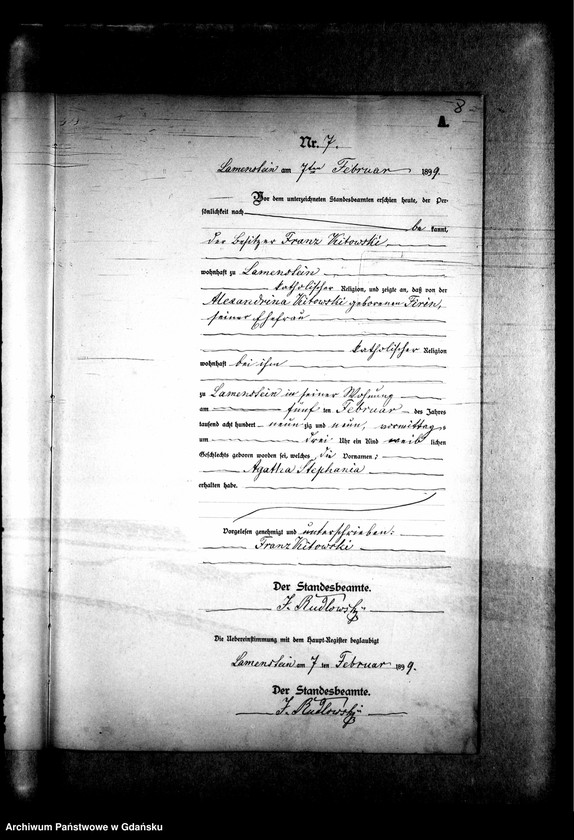 8
A.
Nr. 7.
Lamenstein am 7ten Februar 1899.
Vor dem unterzeichneten Standesbeamten erschien heute, der Per-
sönlichkeit nach
be kannt,
der Besitzer Franz Kitowski,
wohnhaft zu Lamenstein
katholischer Religion, und zeigte an, daß von der
Alexandrina Kitowski geborenen
seiner Ehefrau
katholischer Religion
wohnhaft bei ihm
zu Lamenstein in seiner Wohnung
am fünf ten Februar des Jahres
tausend acht hundert neun zig und neun, vormittags
um drei Uhr ein Kind weib lichen
Geschlechts geboren worden sei, welches die Vornamen:
Agatha Stephania
erhalten habe.
Vorgelesen, genehmigt und unterschrieben:
Franz Kitowski
Der Standesbeamte.
Die Uebereinstimmung mit dem Haupt-Register beglaubigt
Lamenstein am 7 ten Februar 1899.
Der Standesbeamte.
Archiwum Państwowe w Gdańsku